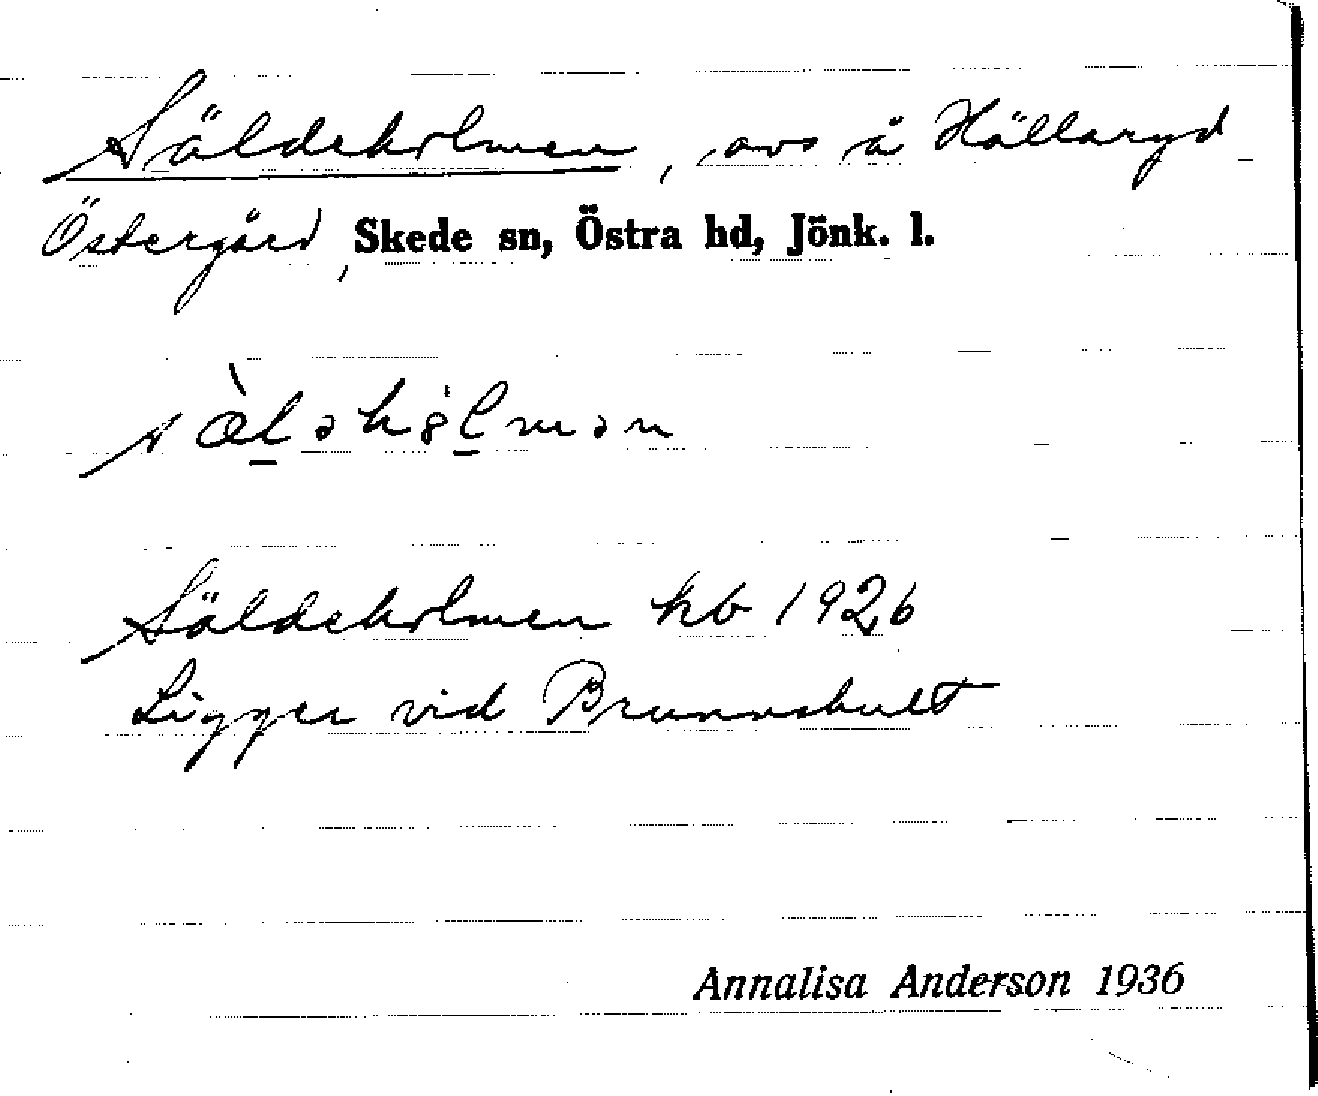 Säldeholmen, avs å Hällaryd
Östergård, Skede sn, Östra hd, Jönk. l.
sæ̀ləhȯlmən
Säldeholmen kb 1926
Ligger vid Brunnshult
Annalisa Anderson 1936